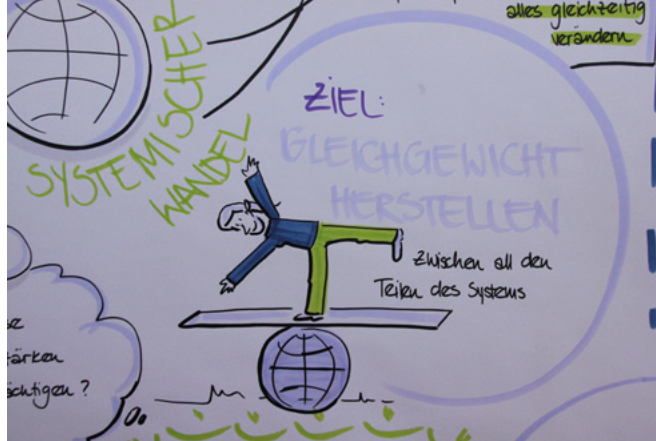 alles gleichzeitig
verändern
SYSTEMISCHER
WANDEL
ZIEL:
GLEICHGEWICHT
HERSTELLEN
zwischen all den
Teilen des Systems
se
tärken
ächtigen?